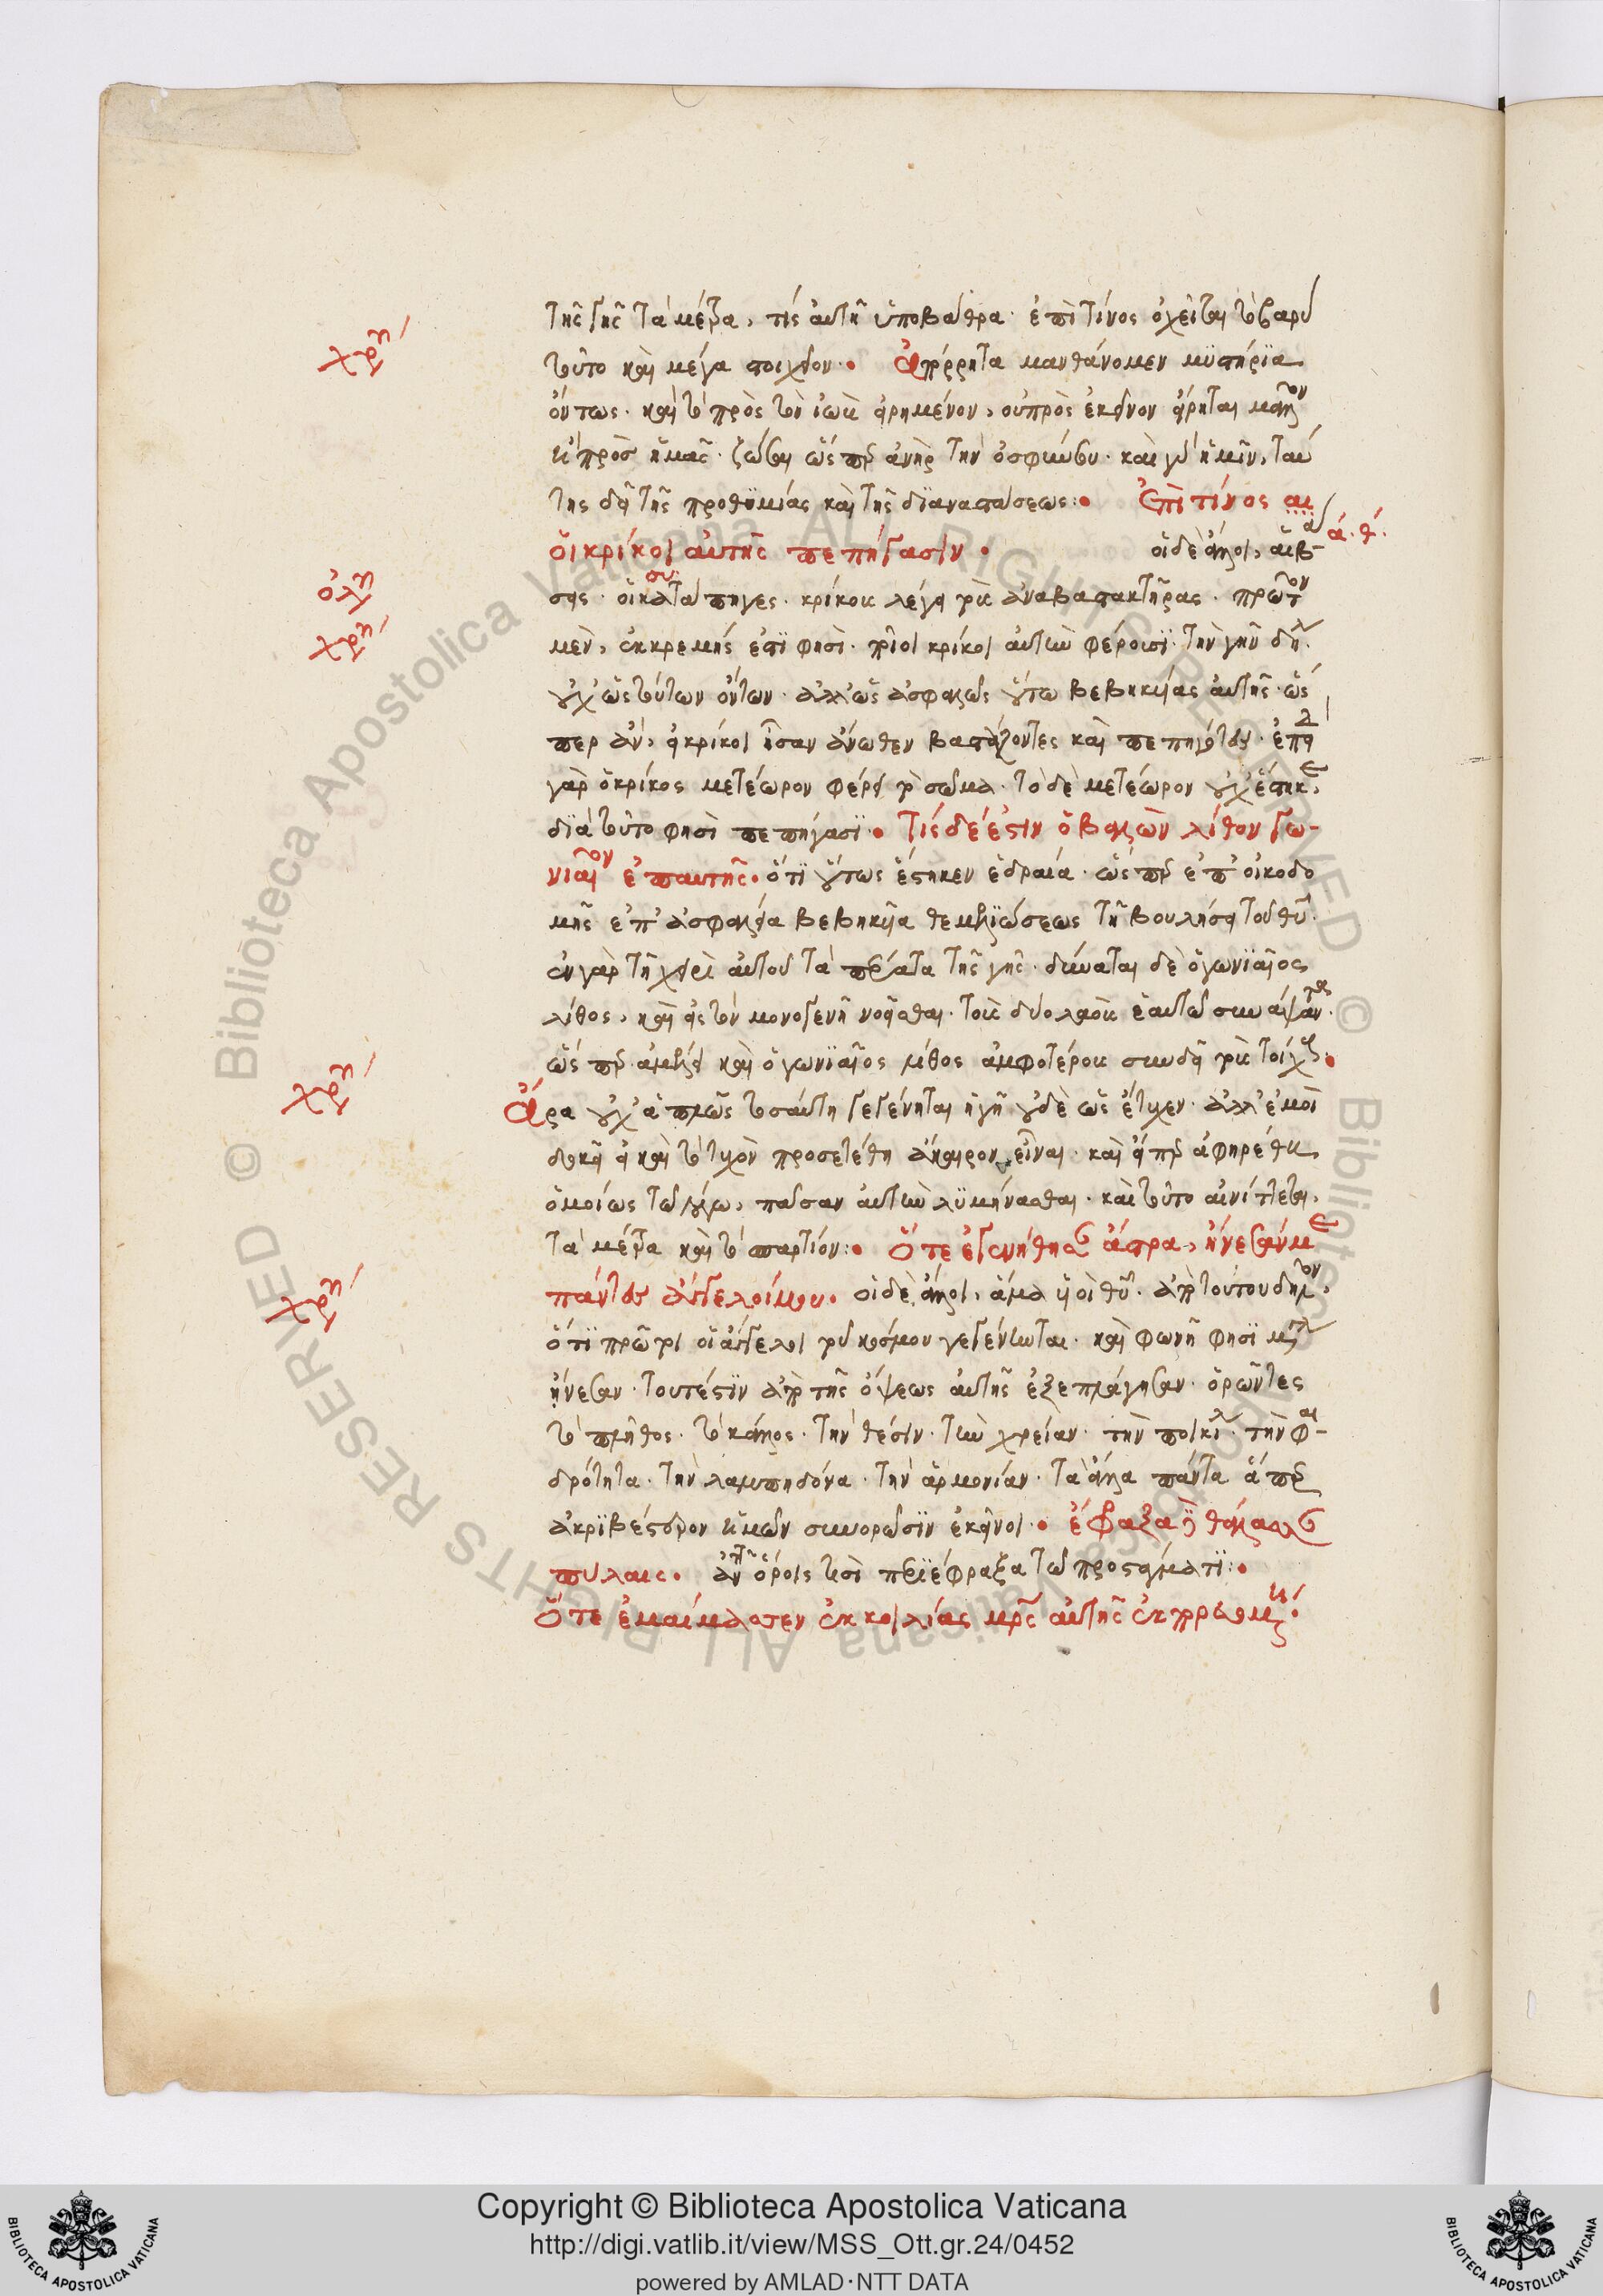 τῆς γῆς τὰ μέτρα, τίς αὐτῇ ὑποβάθρα· ἐπὶ τίνος ὀχεῖται τὸ βαρὺ
τοῦτο καὶ μέγα στοιχεῖον· ἀπόρρητα μανθάνομεν μϋστήρϊα
ὄντως· καὶ τὸ πρὸς τὸν ἰὼβ εἰρημένον, οὐ πρὸς ἐκεῖνον εἴρηται μᾶλλον
ἢ πρὸς ἡμᾶς· ζῶσαι ὥσπερ ἀνὴρ τὴν ὀσφύν σου· καὶ γὰρ ἡμῖν, ταύ
της δεῖ τῆς προθϋμίας καὶ τῆς δϊαναστάσεως:
Ἐπὶ τίνος αι
οἱ κρίκοι αὐτῆς πεπήγασιν·
ἀ. θ.
οἱ δὲ ἄλλοι, αἱ βά
σεις· οἱ κατάπηγες· κρίκους λέγει τοὺς ἀναβαστακτῆρας· πρῶτον
μὲν, ἐκκρεμής ἐστϊ φησὶ· ποῖοι κρίκοι αὐτὴν φέρουσϊ· τὴν γῆν δηλ
οὐχ ὡς τούτων ὄντων· ἀλλ' ὡς ἀσφαλῶς οὕτω βεβηκυίας αὐτῆς· ὥς
περ ἂν, εἰ κρίκοι ἦσαν ἄνωθεν βαστάζοντες καὶ πεπηγότες· ἐπεὶ
γὰρ ὁ κρίκος μετέωρον φέρει τὸ σῶμα· τὸ δὲ μετέωρον οὐχ ἕστηκε,
δϊὰ τοῦτο φησὶ πεπήγασϊ· Τίς δέ ἐστιν ὁ βαλὼν λίθον γω-
νιαῖον ἐπ αυτῆς· ὅτϊ οὕτως ἕστηκεν ἑδραία· ὥσπερ ἐπ' οἰκοδο
μῆς ἐπ' ἀσφαλεία βεβηκυῖα θεμελϊώσεως τῇ βουλήσει τοῦ θῦ·
ἐν γὰρ τῇ χειρὶ αὐτοῦ τὰ πέρατα τῆς γῆς· δύναται δὲ ὁ γωνϊαῖος
λίθος, καὶ εἰς τὸν μονογενῆ νοεῖσθαι· τοὺς δύο λαοὺς ἑαυτῶ συνάψαντος
ὥσπερ ἀμέλει καὶ ὁ γωνϊαῖος λίθος ἀμφοτέρους συνδεῖ τοὺς τοίχους·
Ἆρα οὐχ ἁπλῶς τοσαύτη γεγένηται ἡ γῆ οὐδὲ ὡς ἔτυχεν· ἀλλ' ἐμοὶ
δοκεῖ εἰ καὶ τὸ τυχὸν προσετέθη ἄκαιρον εἶναι· καὶ εἴπερ ἀφηρέθη,
ὁμοίως τῶ λόγω, πᾶσαν αὐτὴν λϋμήνασθαι· καὶ τοῦτο αἰνίττεται,
τὰ μέτρα καὶ τὸ σπαρτίον: Ὅτε ἐγενήθησαν ἄστρα, ἤνεσάν με
πάντες ἄγγελοί μου· οἱ δὲ ἄλλοι, ἅμα υἱοὶ θῦ· ἀπὸ τούτου δῆλον,
ὅτϊ πρῶτοι οἱ ἄγγελοι τοῦ κόσμου γεγένηνται· καὶ φωνῆ φησϊ μεγάλη
ἤνεσαν· τουτέστϊν ἀπὸ τῆς ὄψεως αὐτῆς ἐξεπλάγησαν· ὁρῶντες
τὸ πλῆθος· τὸ κάλλος· τὴν θέσιν· τὴν χρείαν· τὴν ποικιλ· τὴν φαι-
δρότητα· τὴν λαμπηδόνα· τὴν ἁρμονίαν· τὰ ἄλλα πάντα ἅπερ
ἀκρϊβέστερον ἡμῶν συνορῶσϊν ἐκεῖνοι· ἔφραξα δὲ θάλασσαν
πύλαις· ἀντὶ τοῦ ὅροις τισὶ περιέφραξα τῶ προστάγματϊ:
Ὅτε ἐμαίμασσεν ἐκ κοιλίας μρς αὐτῆς ἐκπορευομένη·
χρυ
ὀλυ
χρυ
χρυ
χρυ
Copyright © Biblioteca Apostolica Vaticana
http://digi.vatlib.it/view/MSS_Ott.gr.24/0452
powered by AMLAD·NTT DATA
BIBLIOTECA APOSTOLICA VATICANA
BIBLIOTECA APOSTOLICA VATICANA
© Biblioteca Apostolica Vaticana ALL RIGHTS RESERVED
© Biblioteca Apostolica Vaticana ALL RIGHTS RESERVED